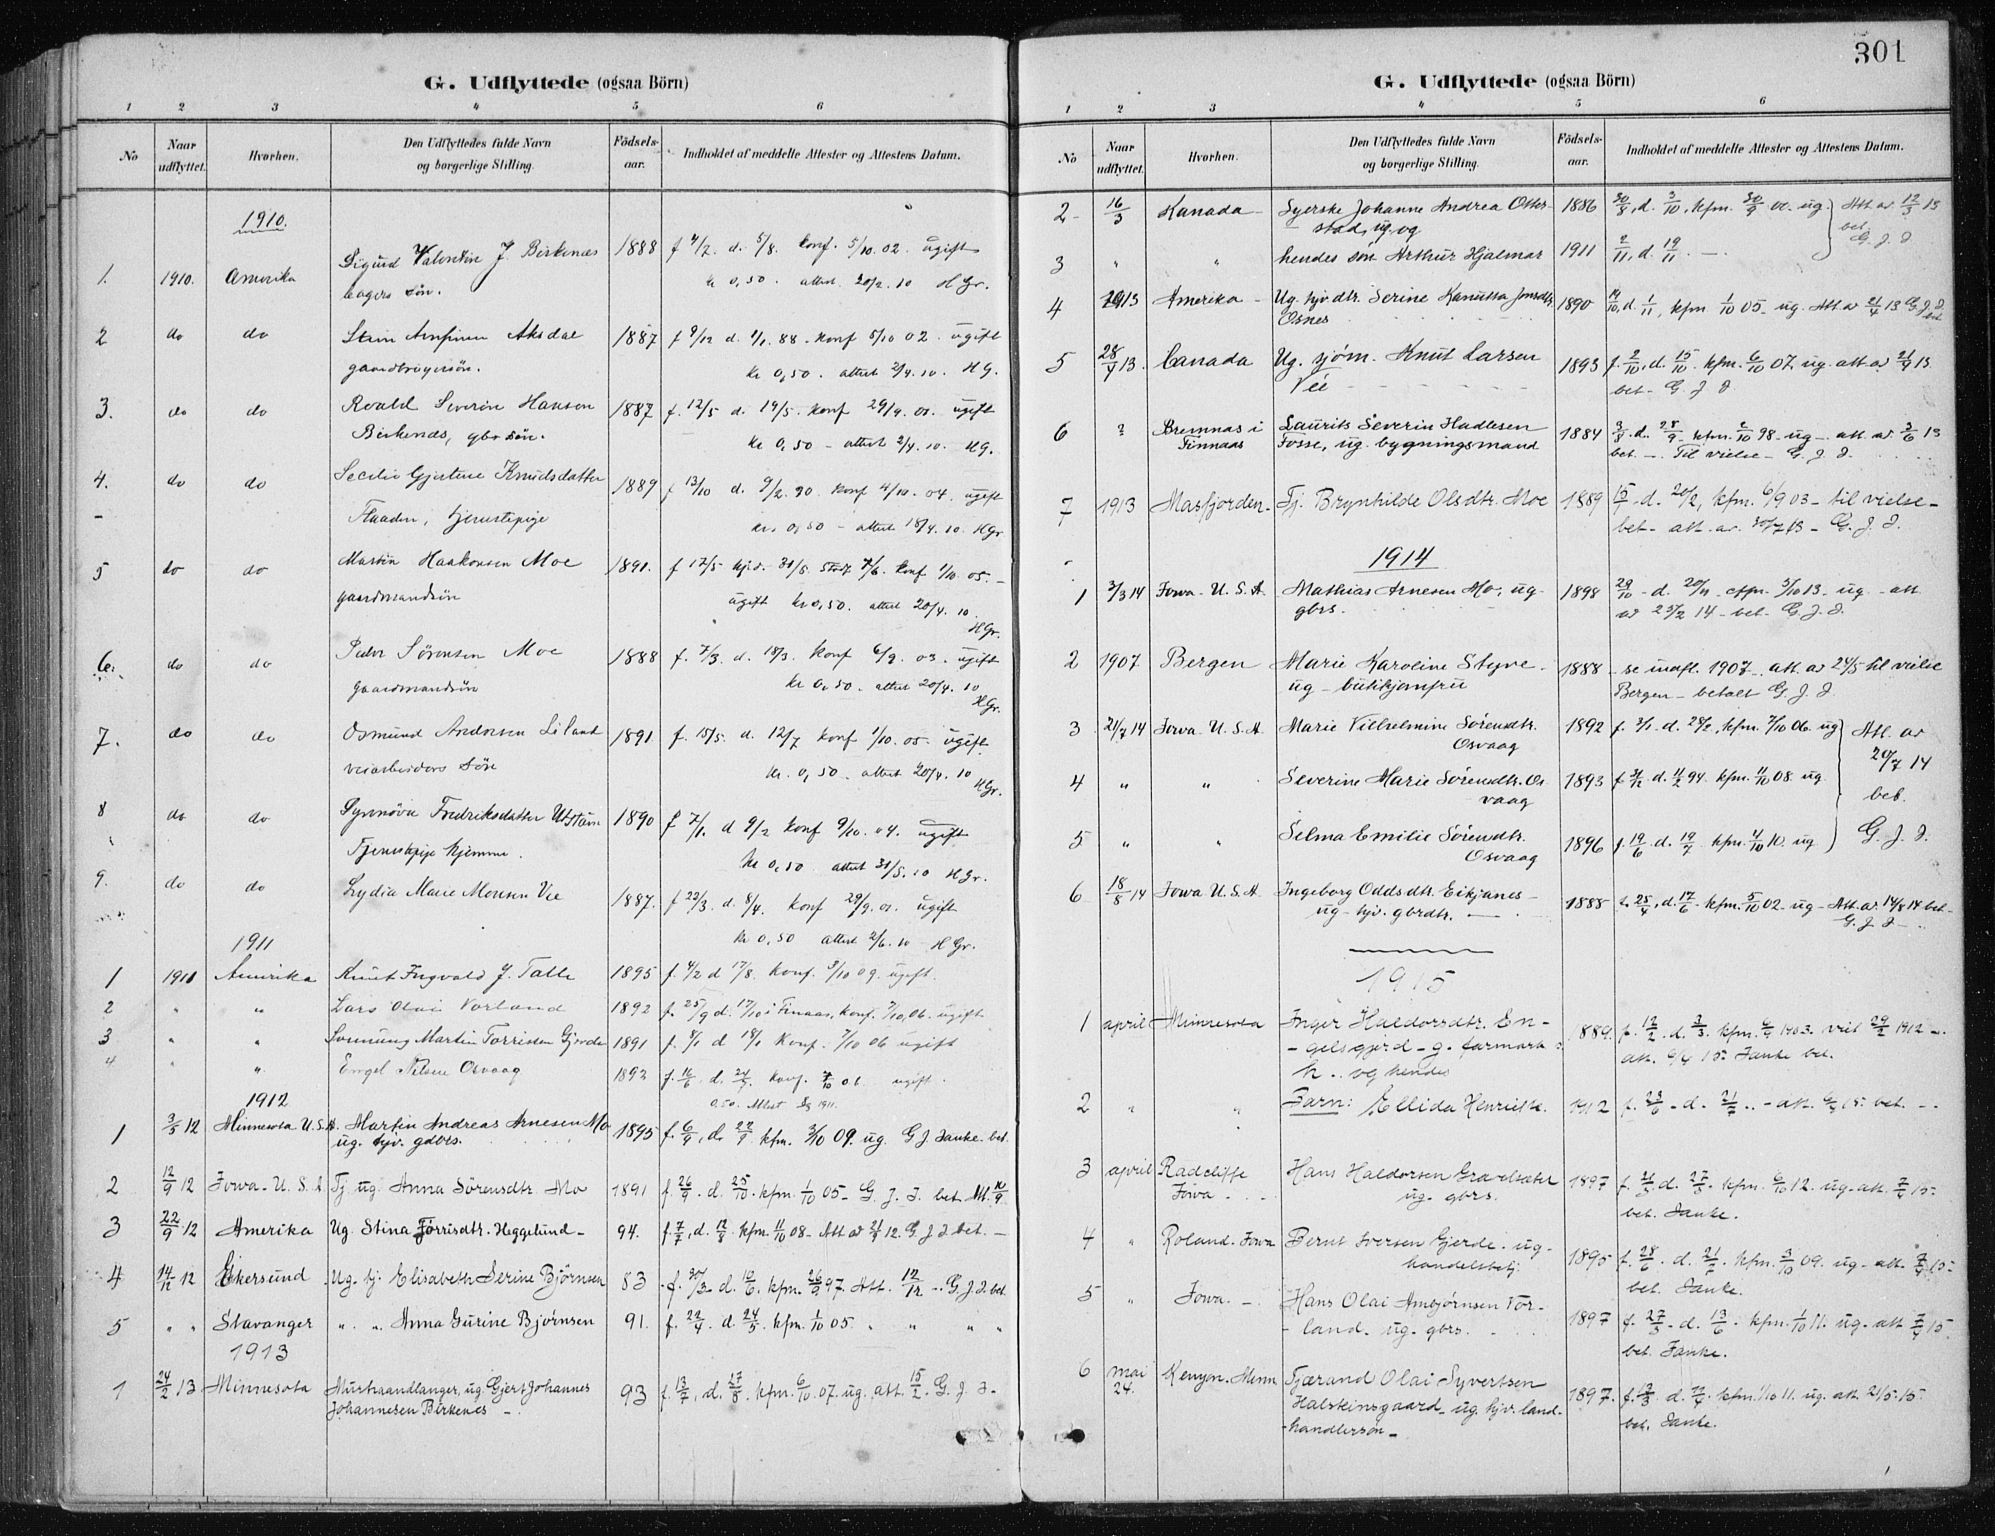 G. Udflyttede (ogsaa Börn)
1 2 3 4 5 6
No Naar udflyttet. Hvorhen. Den Udflyttedes fulde Navn og borgerlige Stilling. Födsels-aar. Indholdet af meddelte Attester og Attestens Datum.
1910.
1. 1910. Amerika Sigurd Valentin J. Birkenæs 1888 f 4/2. d. 5/8. konf. 5/10.02. ugift
bagers søn. kr 0,50. attest 20/2.10 H Gr.
2 do do Stein Arnfinn Aksdal 1887 f 9/12 d. 1/1.88. konf 5/10 02. ugift
gaardbrugersøn. kr 0,50. attest 2/4.10. H G.
3. do do Roald Severin Hansen 1887 f. 12/5 d. 19/5. konf 29/9.01. ugift
Birkenæs, gbr søn. kr 0,50 – attest 2/4.10. HG.
4. do do Secilie Gjertine Knudsdatter 1889 f 13/10 d. 9/2.90. konf 4/10.04. ugift
Flaaden, tjenestepige kr. 0,50 – attest 18/4.10. HGr
5 do do Martin Haakonsen Moe 1891. f 12/5 hjd. 31/5. stadf 7/6. konf 1/10 05. –
gaardmandsøn ugift kr 0,50. attest 20/4.10.
HGr.
6. do do Peder Sørensen Moe 1888 f. 7/3. d. 18/3. konf 6/9.03. ugift
gaardmandsøn kr 0,50. attest 20/4.10
HGr.
7. do do Osmund Andersen Liland 1891 f. 15/5. d. 12/7 konf 1/10.05. ugift
veiarbeiders søn kr. 0,50 – attest 20/4.10
HGr.
8 do do Synnøva Fredriksdatter 1890 f 7/1. d 9/2 konf 9/10.04. ugift
Tjenestepige hjemme. kr 0,50 attest 31/5.10 H Gr.
9. do do Lydia Marie Monsen Vee 1887. f 22/3. d. 8/4. konf 29/9.01. ugift
kr 0,50 attest 2/6.10 H Gr.
1911
1 1911 Amerika Knut Ingvald J. Tolle 1895 f. 4/2 d 17/8. konf. 3/10 09. ugift.
2 " " Lars Olai Vorland 1892 f. 25/9 d. 17/10 i Finaas, konf. 7/10,06. ugift
3 " " Martin Torrisen Gjerde 1891 f. 8/1 d 18/1 konf. 7/10 06 ugift
4 " " Engel Nilsine Osvaag 1892 f. 16/6. d. 24/7. konf. 7/10 06 ugift.
0.50. Attest 1911.
1912
1 3/5 12 Minnesota U.S.A. Martin Andreas Arnesen Mo 1895 f. 6/9, d. 22/9 kfm. 3/10 09. ug. G J Janke. bet.
ug. hjv. gdbrs.
2 12/9 12 Iowa – U. S. A Tj. ug. Anna Sørensdtr. Mo 1891 f. 26/9. d. 25/10. kfm. 1/10 05 – G. J. J. bet. Att. 10/9.
3 22/9 12 Amerika Ug. Stina Torrisdtr. Heggelund – 94. f. 7/7, d. 12/8 kfm. 11/10 08 – Att av 21/9 12. G J J. bet. –
4 14/12 12 Ekersund Ug. tj. Elisabeth Serine Bjørnsen 83 f. 30/3 d. 10/6. kfm. 26/9 97. Att. 12/12 – G. J. J. bet
5 " " Stavanger " " Anna Gurine Bjørnsen 91. f. 22/4. d. 24/5. kfm. 1/10 05. " " " "
1913
1 24/2 13 Minnesota Murhaandlanger, ug. Gjert Johannes 93 f. 13/7, d. 27/8. kfm. 6/10.07. ug. att. 15/2. G. J. J.
Johannesen Birkenes –
301
G. Udflyttede (ogsaa Börn)
1 2 3 4 5 6
No Naar udflyttet. Hvorhen. Den Udflyttedes fulde Navn og borgerlige Stilling. Födsels-aar. Indholdet af meddelte Attester og Attestens Datum.
2 – 16/3 Kanada – Syerske Johanne Andrea Otter- 1886 30/8, d. 3/10, kfm. 30/9 00. ug. Att. av 12/3 13
stad, ug. og bet. G. J. J.
3 " " hendes søn Arthur Hjalmar 1911 2/11, d. 19/11. –
4 1913 Amerika – Ug. hjv dtr. Serine Kanutta Jonsdtr. 1890 14/10, d. 1/11, kfm 1/10 05 – ug. Att. av 21/4 13 G J J.
Osnes bet.
5 28/4 13. Canada Ug. sjøm. Knut Larsen 1893 f. 2/10, d. 15/10. kfm. 6/10 07. ug. att. av 21/4 13.
Vee bet – G J J.
6 ? Bremnæs i Laurits Severin Hadlesen 1884 3/8. d. 28/9. kfm. 2/10 98 – ug – att. av 3/6 13
Finnaas Fosse, ug. bygningsmand bet. – Til vielse – G. J. J.
7 1913 Masfjorden – Tj. Brynhilde Olsdtr. Moe 1889 15/1 – d. 20/2, kfm. 6/9 03 – til vielse –
bet – att. av. 30/7 13 – G. J. J.
1914
1 3/3 14 Iowa – U. S. A. Mathias Arnesen Mo, ug – 1898 29/10 – d. 20/11 – cffm. 5/10 13. – ug – att
gbrs. av 23/2 14 – bet – G. J. J.
2 1907 Bergen Marie Karoline Styve – 1888 – se indfl. 1907 – att. av 24/5 til vielse
ug – butikjomfru Bergen – betalt G. J. J.
3 21/7 14 Iowa U. S. A. Marie Vilhelmine Sørensdtr. 1892 f. 3/1. d. 28/2, kfm. 7/10 06. ug Att. av
Osvaag 20/7 14
4 " " Severine Marie Sørensdtr. Os 1893 f 3/12 d. 11/2 94. kfm. 11/10 08 ug bet.
vaag
5 " " Selma Emilie Sørensdtr. 1896 f. 19/6. d. 19/7 kfm. 4/10 10. ug G. J. J.
Osvaag
6 18/8 14 Iowa U. S. A. Ingeborg Oddsdtr. Eikjanes – 1885 f. 25/4, d. 17/6 – kfm. 5/10 02 – ug – Att. av 14/8 14 bet –
ug – hjv. gbrdtr. – G. J. J –
1915
1 april Minnesota Inger Haldorsdtr. En- 1889. f. 12/2. d. 3/3. kfm. 6/9 1903. viet 29/2 1912 –
– gelsgjerd – g. farmark att. 9/4 15 Janke bet.
k. og hendes
2 " " Barn: Ellida Henriette. 1912 f. 23/6 – d. 21/7 .. – att. 9/4 15. bet. –
3 april Radcliffe Hans Haldorsen Gravelsæter 1897 f. 21/3 d. 27/5. kfm. 6/10 12. ug. att. 7/4 15.
Iowa ug. gbrs. bet. Janke.
4 " Roland. Iowa Bernt Iversen Gjerde – ug – 1895 f. 28/6. d. 21/7. kfm. 3/10 09. ug – att. 7/4 15.
handelsbetj. bet. Janke.
5 " Iowa. – Hans Olai Ambjørnsen Vor- 1897 f. 27/5 – d. 13/6. kfm. 1/10 11. ug – att 7/4 15
– land. ug – gbrs. bet. Janke.
6 mai 24. Kenyon. Minn Tjærand Olai Syvertsen 1897. f. 12/3 d. 11/4. kfm. 1/10 11. ug. att. 21/5 15.
Halsteinsgaard – ug. hjv. land- bet. Janke.
– handlersøn –